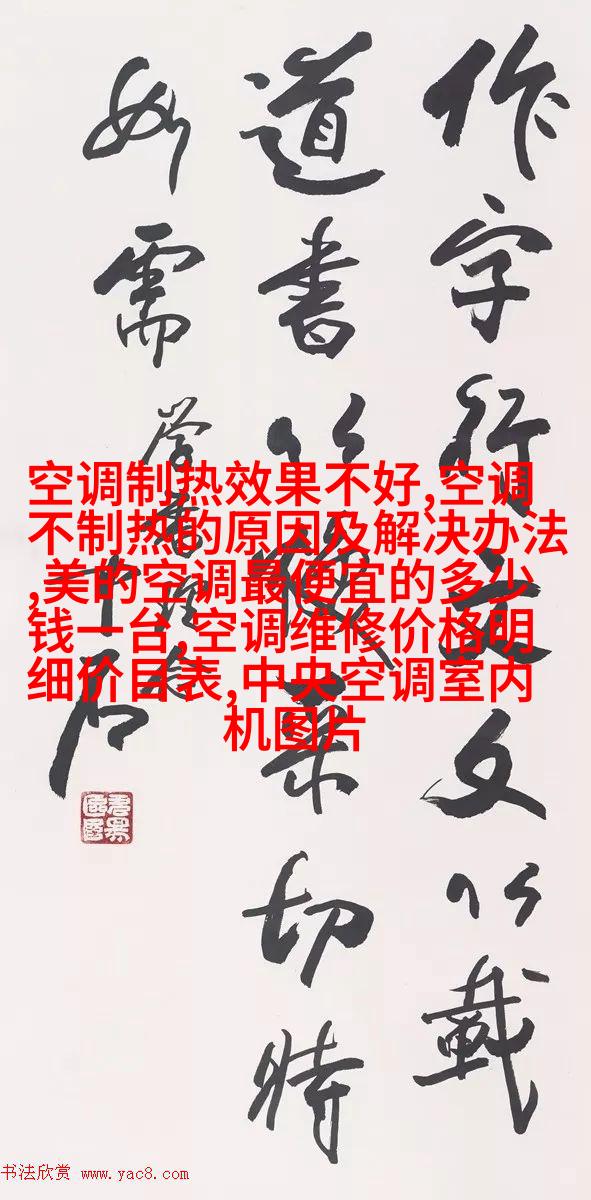 作字行文文以載
道書以焕采切時
如需
中石
空调制热效果不好,空调
不制热的原因及解决办法
,美的空调最便宜的多少
钱一台,空调维修价格明
细价目表,中央空调室内
机图片
书法欣赏 www.yac8.com